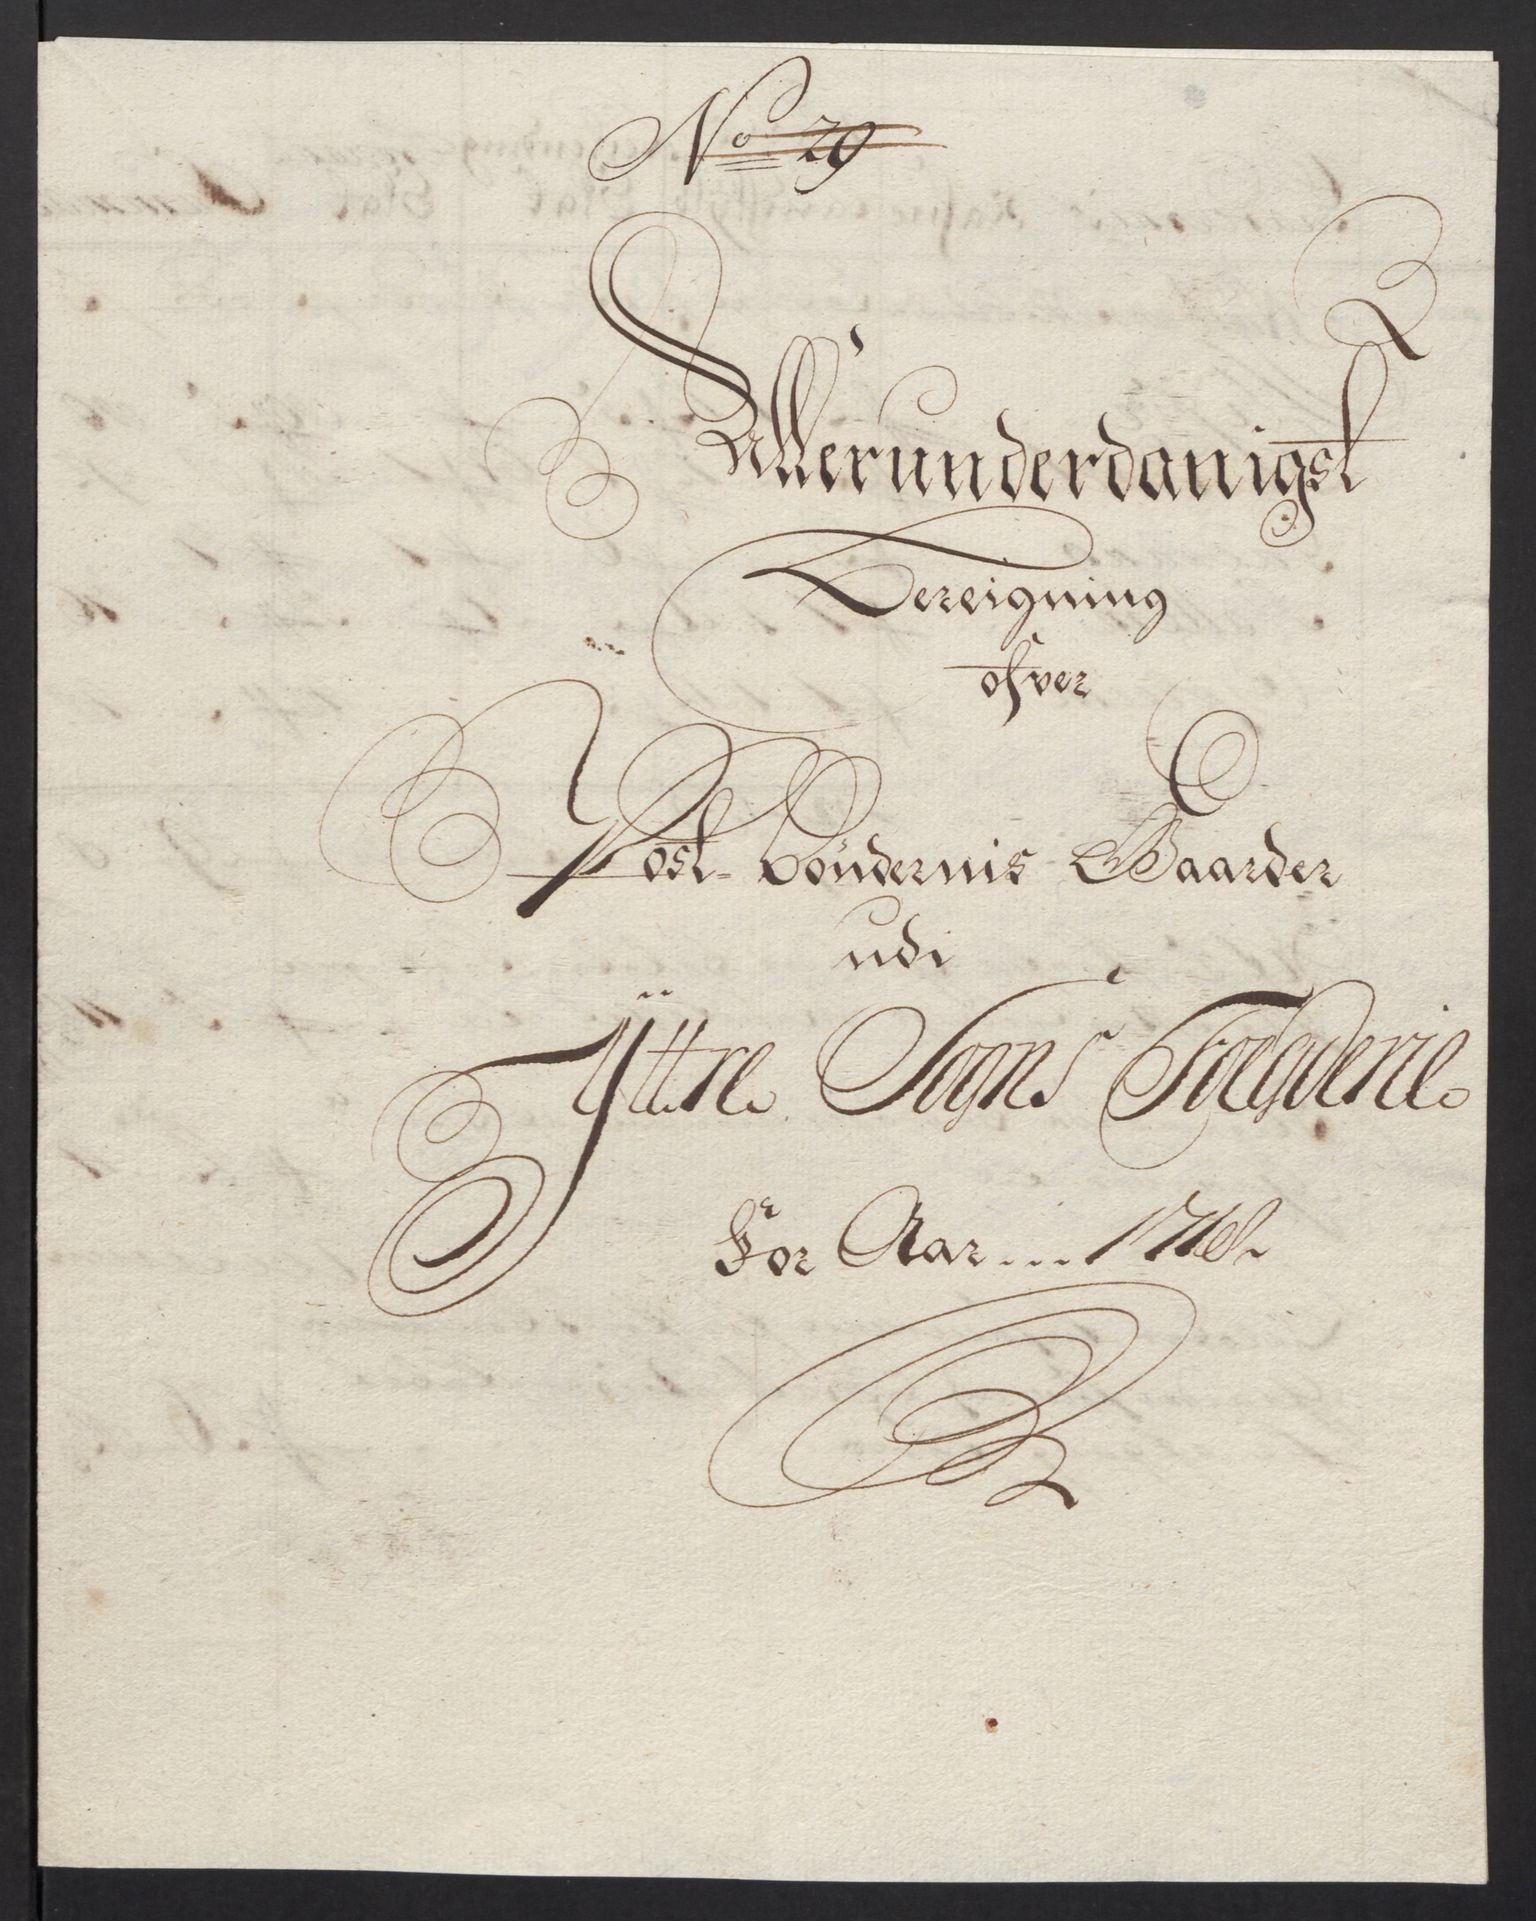 No 29
Allerunderdanigst
Bereigning
ofver
Post-Böndernis Gaarder
udi
Ÿttre Sogns Foegderie
For Aar ... 1718.